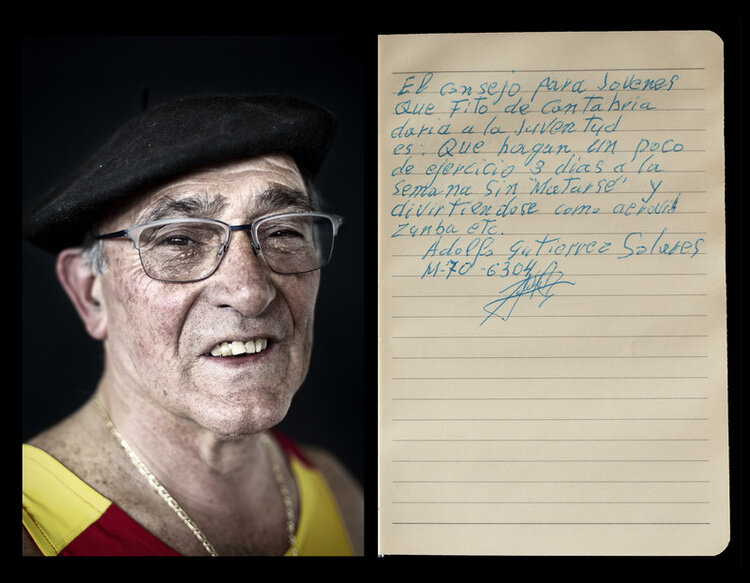 El consejo para Jovenes
Que Fito de Cantabria
daria a la Juventud
es. Que hagan un poco
de ejercicio 3 días a la
semana sin "Matarse" y
divirtiendose como aerovic
zunba etc.
Adolfo Gutierrez Solares
M-70-6304